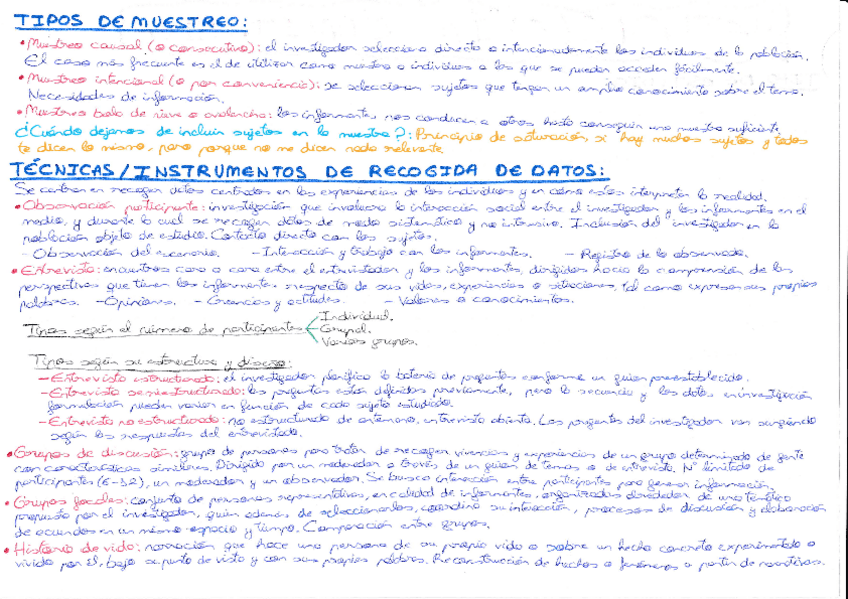 TIPOS DE MUESTREO:
• Muestreo causal (o consecutivo): el investigador selecciona directa e intencionadamente los individuos de la población.
El caso más frecuente es el de utilizar como muestra a individuos a los que se pueden acceder fácilmente.
• Muestreo intencional (o por conveniencia): se seleccionan sujetos que tengan un amplio conocimiento sobre el tema.
Necesidades de información.
• Muestreo bola de nieve o avalancha: los informantes nos conducen a otros hasta conseguir una muestra suficiente.
¿Cuándo dejamos de incluir sujetos en la muestra?: Principio de saturación, si hay muchos sujetos y todos
te dicen lo mismo, paro porque no me dicen nada relevante.
TÉCNICAS/INSTRUMENTOS DE RECOGIDA DE DATOS:
Se centran en recoger datos centrados en las experiencias de los individuos y en cómo estos interpretan la realidad.
• Observación participante: investigación que involucra la interacción social entre el investigador y los informantes en el
medio, y durante la cual se recogen datos de modo sistemático y no intrusivo. Inclusión del investigador en la
población objeto de estudio. Contacto directo con los sujetos.
- Observación del escenario. - Interacción y trabajo con los informantes. - Registro de lo observado.
• Entrevista: encuentros cara a cara entre el entrevistador y los informantes, dirigidos hacia la comprensión de las
perspectivas que tienen los informantes respecto de sus vidas, experiencias o situaciones, tal como expresan sus propias
palabras. - Opiniones. - Creencias y actitudes. - Valores o conocimientos.
Tipos según el número de participantes
Individual.
Grupal.
Varios grupos.
Tipos según su estructura y diseño:
- Entrevista estructurada: el investigador planifica la batería de preguntas conforme un guion preestablecido.
- Entrevista semiestructurada: las preguntas están definidas previamente, pero la secuencia y los datos en investigación
formulación pueden variar en función de cada sujeto estudiado.
- Entrevista no estructurada: no estructurada de antemano, entrevista abierta. Las preguntas del investigador van surgiendo
según las respuestas del entrevistado.
• Grupos de discusión: grupo de personas para tratar de recoger vivencias y experiencias de un grupo determinado de gente
con características similares. Dirigido por un moderador a través de un guion de temas o de entrevista. Nº limitado de
participantes (6-12), un moderador y un observador. Se busca interacción entre participantes para generar información.
• Grupos focales: conjunto de personas representativas, en calidad de informantes, organizadas alrededor de una temática
propuesta por el investigador, quien además de seleccionarlos, coordina su interacción, procesos de discusión y elaboración
de acuerdos en un mismo espacio y tiempo. Comparación entre grupos.
• Historia de vida: narración que hace una persona de su propia vida o sobre un hecho concreto experimentado o
vivido por él, bajo su punto de vista y con sus propias palabras. Reconstrucción de hechos o fenómenos a partir de narrativas.